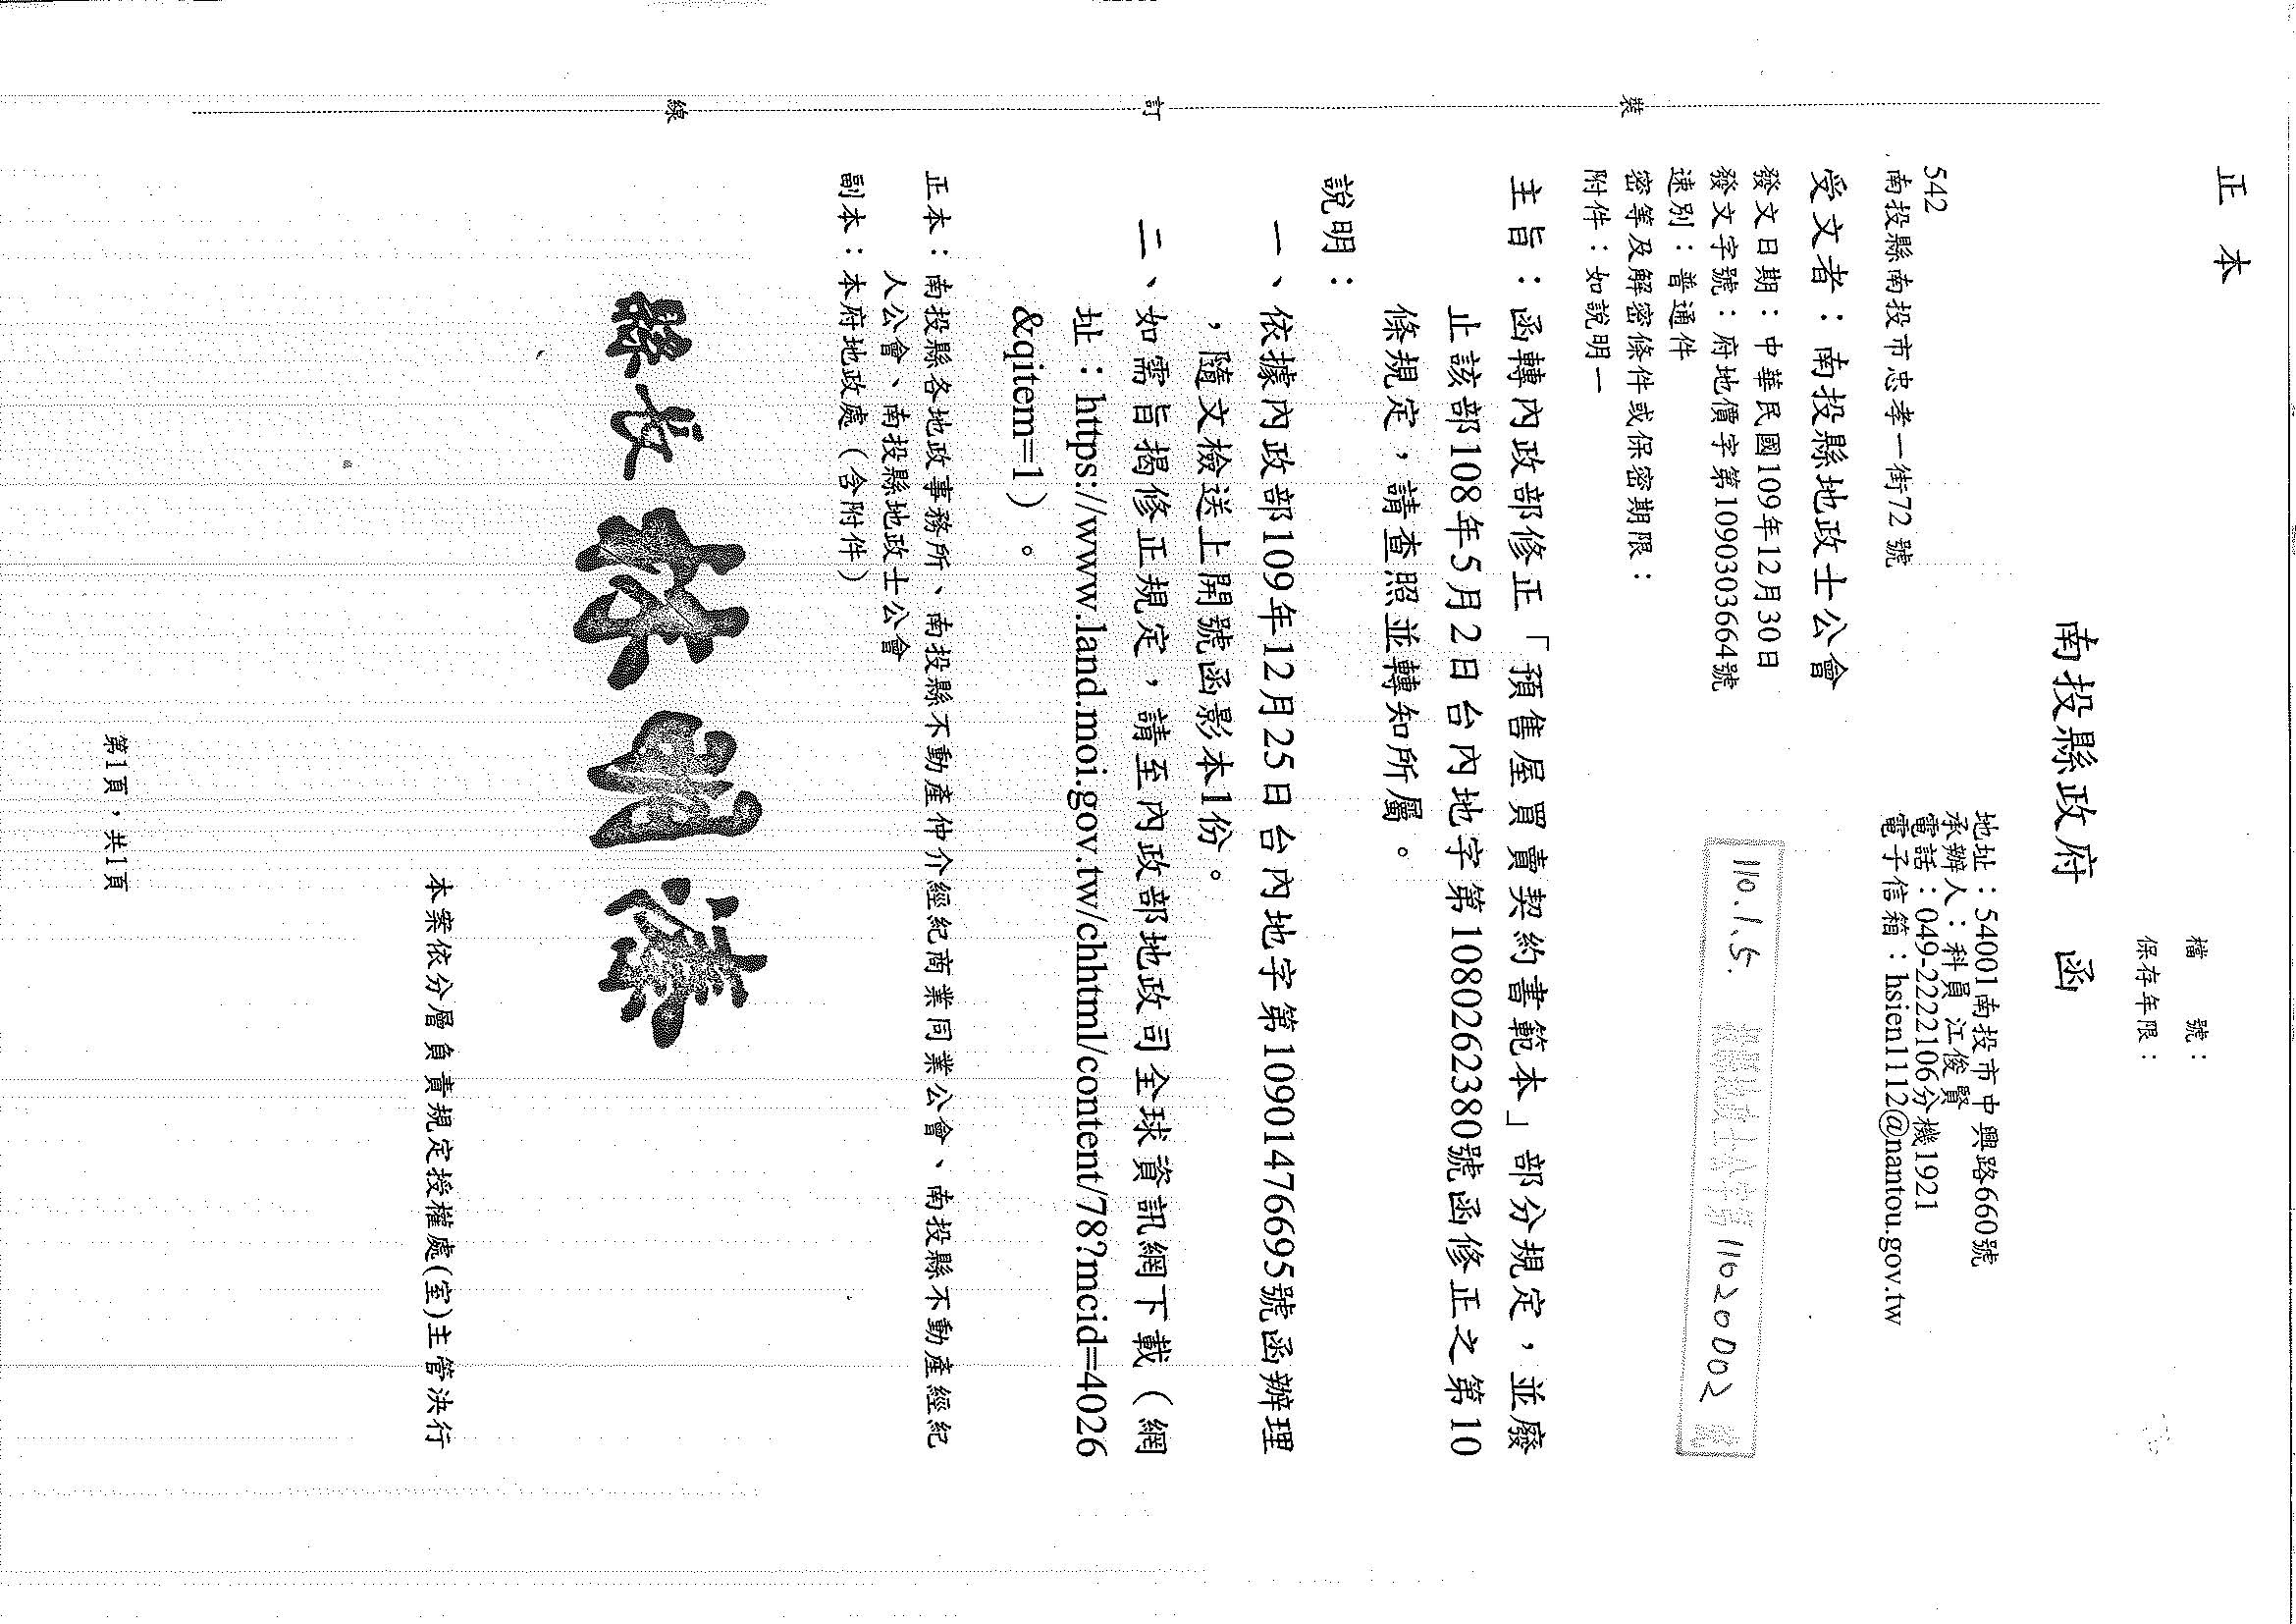 正本
檔　號：
保存年限：
南投縣政府　函
地址：54001南投市中興路660號
承辦人：科員 江俊賢
電話：049-2222106分機1921
電子信箱：hsien1112@nantou.gov.tw
542
南投縣南投市忠孝一街72號
受文者：南投縣地政士公會
發文日期：中華民國109年12月30日
發文字號：府地價字第1090303664號
速別：普通件
密等及解密條件或保密期限：
附件：如說明一
110.1.5.
11020002
主旨：函轉內政部修正「預售屋買賣契約書範本」部分規定，並廢
止該部108年5月2日台內地字第1080262380號函修正之第10
條規定，請查照並轉知所屬。
說明：
一、依據內政部109年12月25日台內地字第10901476695號函辦理
，隨文檢送上開號函影本1份。
二、如需旨揭修正規定，請至內政部地政司全球資訊網下載（網
址：https://www.land.moi.gov.tw/chhtml/content/78?mcid=4026
&qitem=1）。
正本：南投縣各地政事務所、南投縣不動產仲介經紀商業同業公會、南投縣不動產經紀
人公會、南投縣地政士公會
副本：本府地政處（含附件）
縣長 林明溱
本案依分層負責規定授權處(室)主管決行
第1頁，共1頁
裝
訂
線